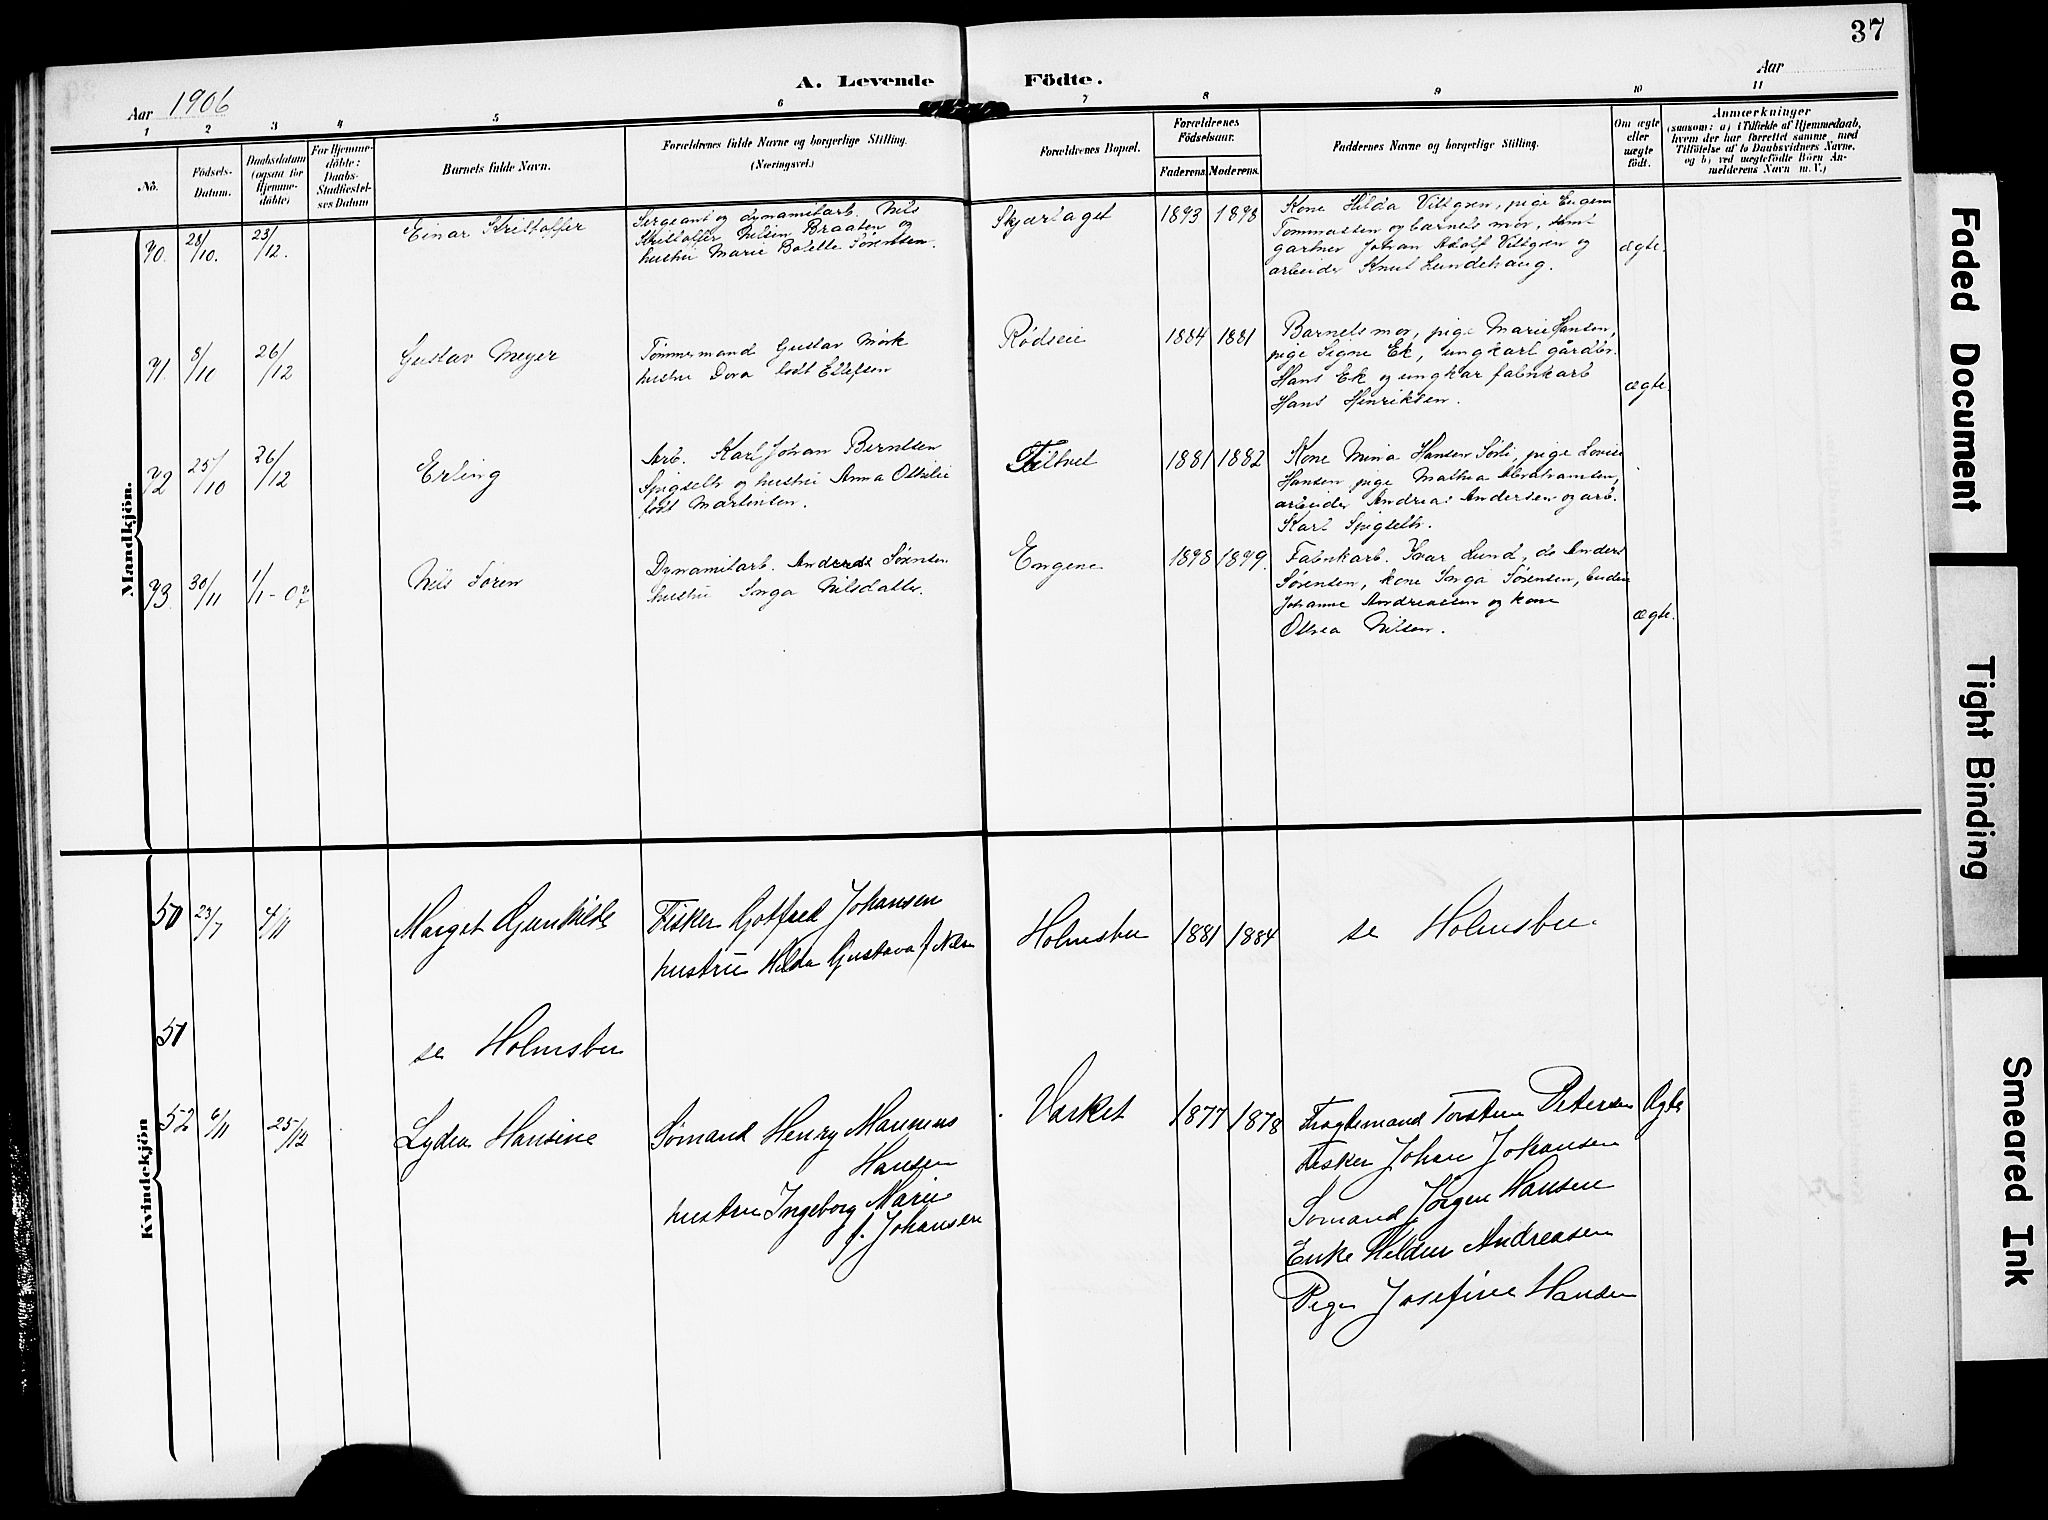 37
A. Levende Födte.
Aar 1906
Aar
1 2 3 4 5 6 7 8 9 10 11
No.
Födsels-
Datum.
Daabsdatum
(ogsaa for
Hjemme-
döbte)
For Hjemme-
döbte:
Daabs-
Stadfæstel-
ses Datum
Barnets fulde Navn.
Forældrenes fulde Navne og borgerlige Stilling.
(Næringsvei.)
Forældrenes Bopæl.
Forældrenes
Födselsaar.
Faderens. Moderens.
Faddernes Navne og borgerlige Stilling.
Om ægte
eller
uægte
födt.
Anmærkninger
(saasom: a) i Tilfælde af Hjemmedaab,
hvem der har forrettet samme med
Tilföielse af to Daabsvidners Navne,
og b) ved uægtefödte Börn An-
melderens Navn m. V.)
Mandkjön.
70. 28/10. 23/12.
Einar Kristoffer
Sergeant og dynamitarb. Nils
Kristoffer Nilsen Braaten og
hustru Marie Bolette Sørensen.
Skjærtaget
1893 1898
Kone Hilda Vittgren, pige
Tommassen og barnets mor, samt
gartner Johan Adolf Vittgren og
arbeider Knut Lundehaug.
ægte.
71. 8/11 26/12
Gustav Meyer
Tømmermand Gustav Mørk
hustru Dora født Ellefsen
Rødseie
1884 1881
Barnets mor, pige Marie Hansen,
pige Signe Ek, ungkarl gårdbr.
Hans Ek og ungkar fabrikarb
Hans Henriksen.
ægte.
72 25/10 26/12
Erling
Arb. Karl Johan Berntsen
Spigseth og hustru Anna Othilie
født Martinsen.
Filtvet
1881 1882
Kone Mina Hansen Sørli, pige Lovise
Hansen pige Mathea Abrahamsen,
arbeider Andreas Andersen og arb.
Karl Spigseth.
73. 30/11 1/1-07
Nils Søren
Dynamitarb. Anders Sørensen
hustru Inga Nilsdatter.
Engene
1898 1899.
Fabrikarb. Ivar Lund, do Anders
Sørensen, kone Inga Sørensen,
Johanne Andreassen og kone
Othea Nilsen.
ægte.
Kvindekjön
50 23/7 4/11
Marget Gunhilde
Fisker Gotfred Johansen
hustru Hilda Gustava f. Nilsen
Holmsbu
1881 1884
se Holmsbu
51
se Holmsbu
52 6/11 25/12
Lydia Hansine
Sømand Henry Marenius
Hansen
hustru Ingeborg Marie
f. Johansen
Værket
1877 1878
Fragtemand Torsten Petersen
Fisker Johan Johansen
Sømand Jørgen Hansen
Enke Andreasen
Pige Josefine Hansen
Ægte
Faded Document
Tight Binding
Smeared Ink